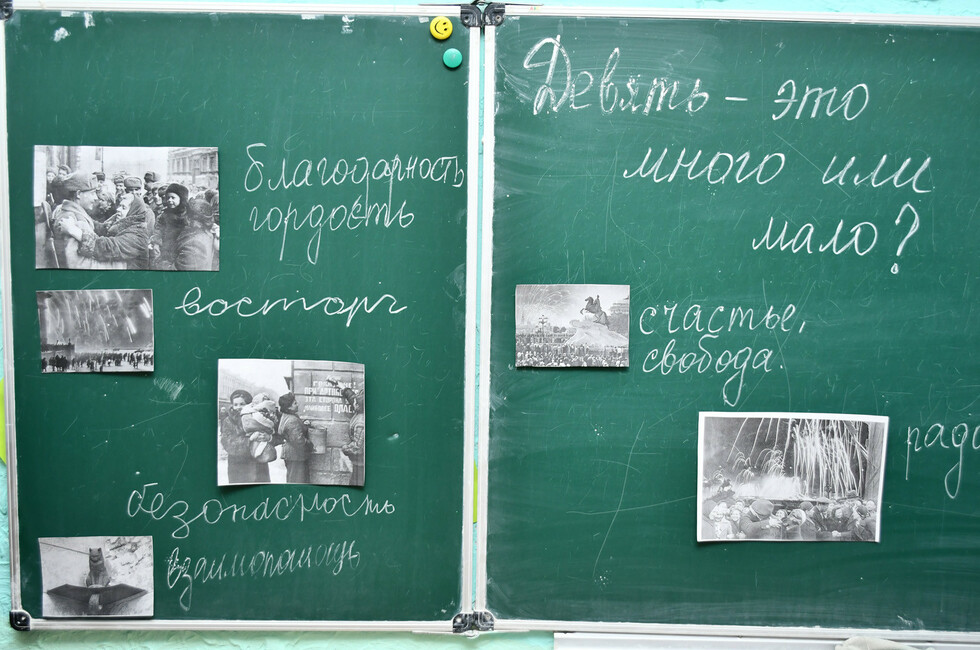 благодарность
гордость
восторг
безопасность
взаимопомощь
Девять – это
много или
мало?
счастье,
свобода.